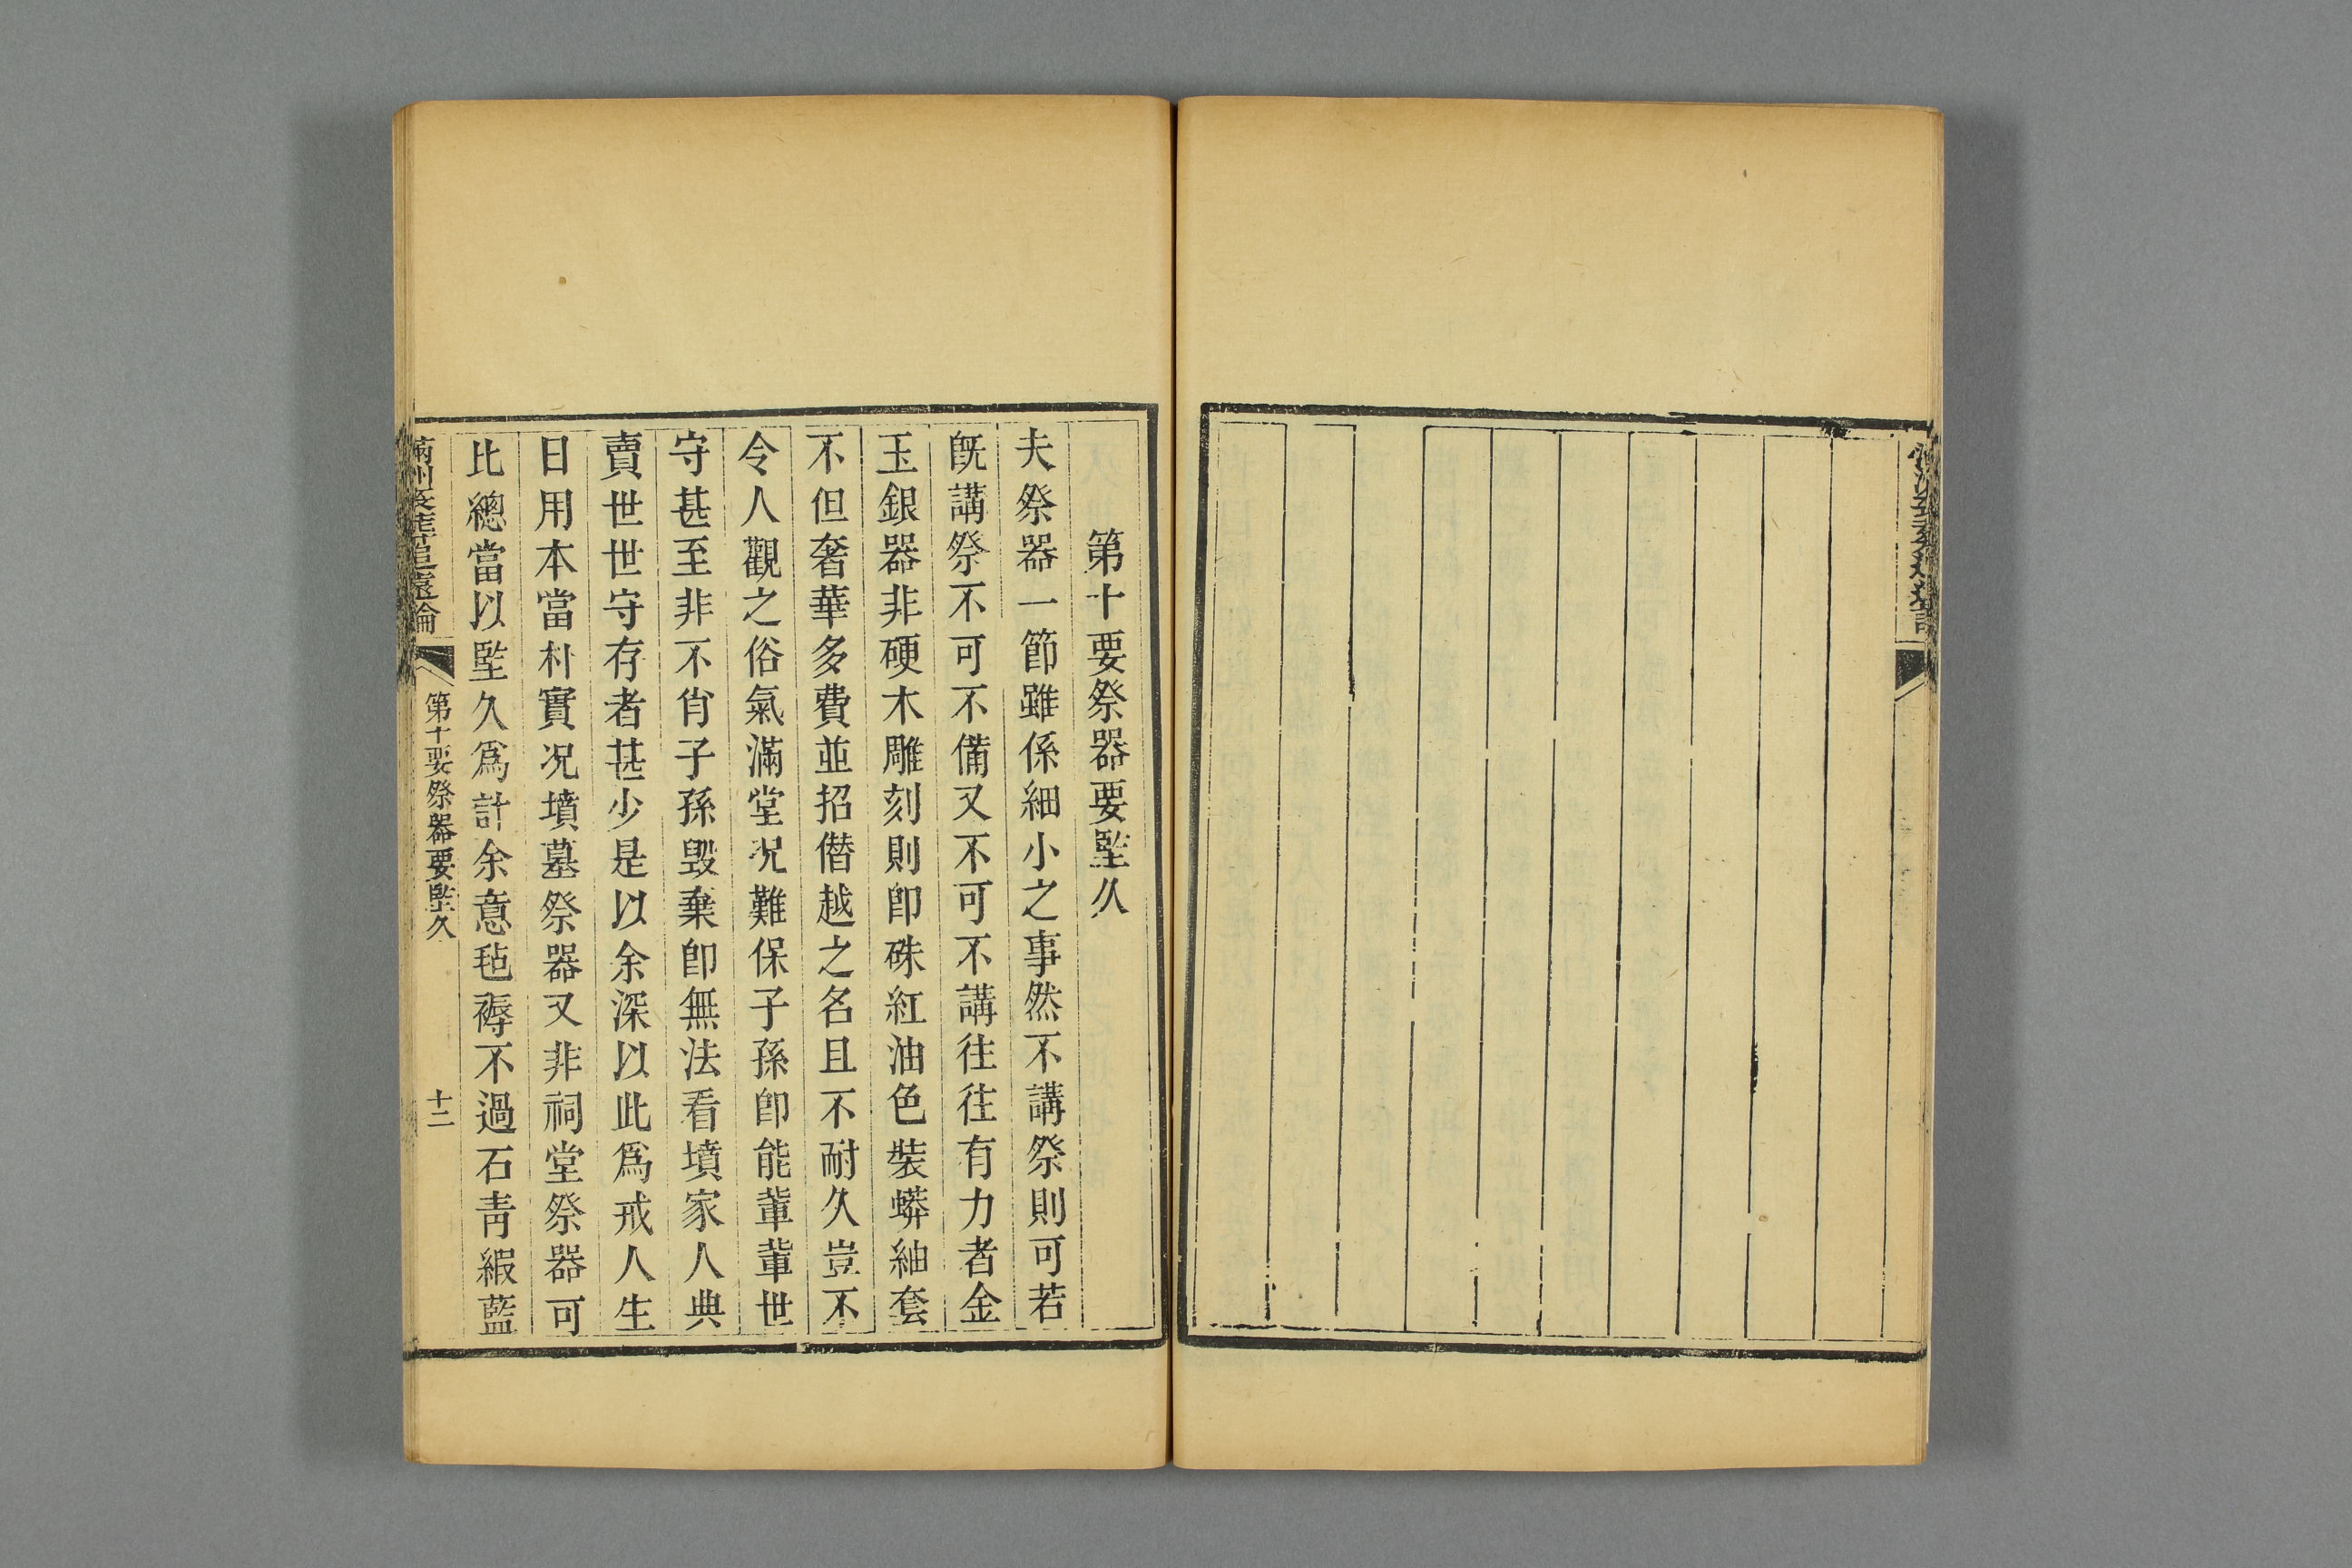 第十要祭器要堅久
夫祭器一節雖係細小之事然不講祭則可若
旣講祭不可不備又不可不講往往有力者金
玉銀器非硬木雕刻則卽硃紅油色裝蟒紬套
不但奢華多費並招僭越之名且不耐久豈不
令人觀之俗氣滿堂况難保子孫卽能輩輩世
守甚至非不肖子孫毁棄卽無法看墳家人典
賣世世守存者甚少是以余深以此爲戒人生
日用本當朴實况墳墓祭器又非祠堂祭器可
比總當以堅久爲計余意毡褥不過石靑緞藍
追遠論
第十要祭器要堅久
十二